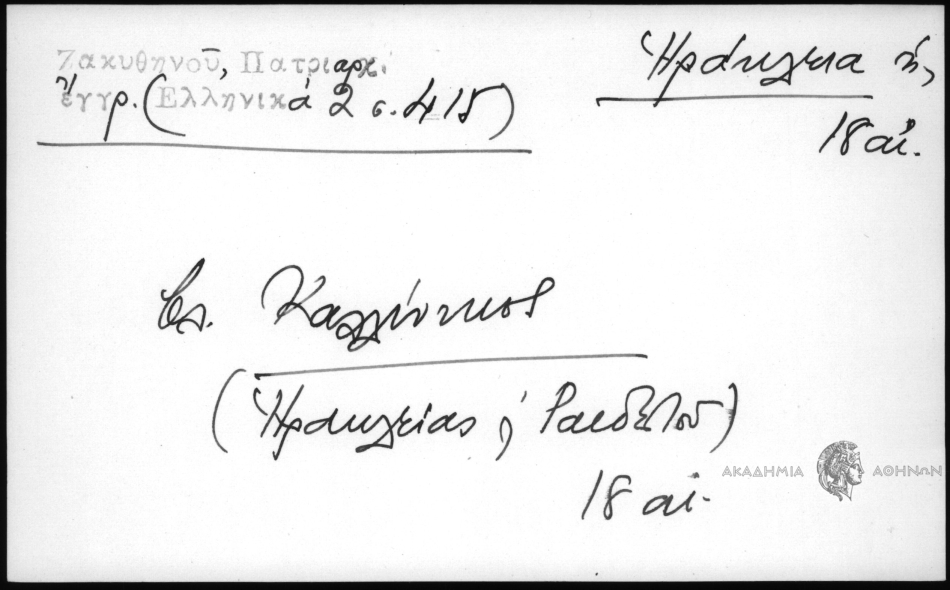 Ζακυθηνοῦ, Πατριαρχ.
ἔγγρ. (Ἑλληνικά 2 σ. 415)
Ἡράκλεια ἡ,
18 αἰ.
βλ. Καλλίνικος
(Ἡρακλείας ἤ Ραιδεστοῦ)
18 αἰ.
ΑΚΑΔΗΜΙΑ ΑΘΗΝΩΝ